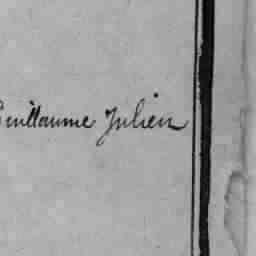 Guillaume Julien